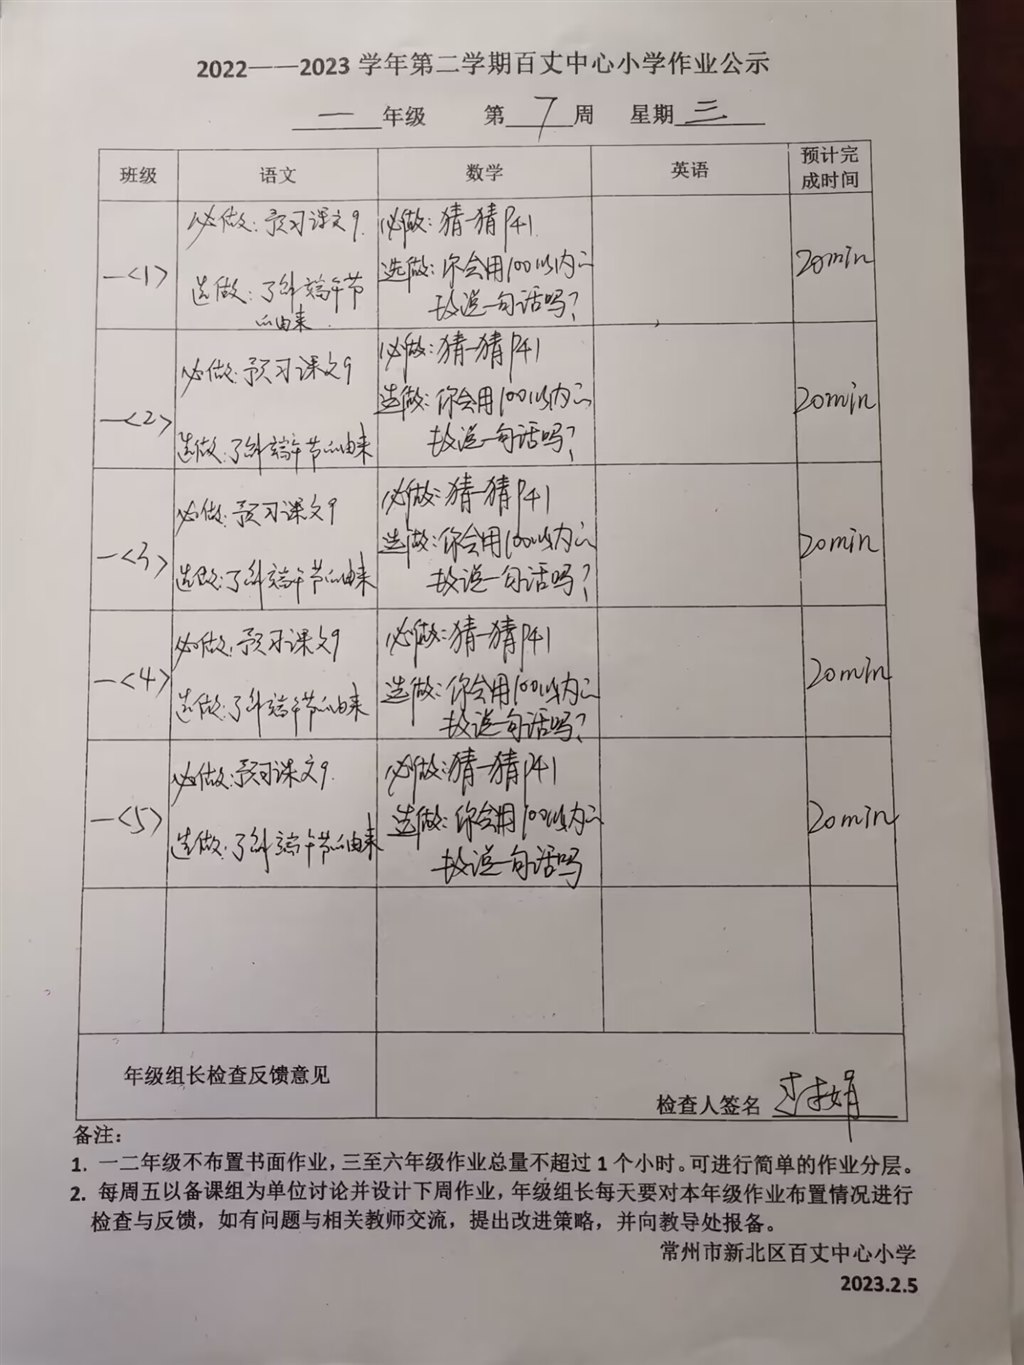 2022——2023 学年第二学期百丈中心小学作业公示
一 年级 第 7 周 星期 三
班级 语文 数学 英语 预计完
成时间
一<1> 必做：预习课文9. 必做：猜一猜P41. 20min
选做：了解端午节 选做：你会用100以内的
的由来. 数说一句话吗？
一<2> 必做：预习课文9 必做：猜一猜P41 20min
选做：了解端午节的由来 选做：你会用100以内的
数说一句话吗？
一<3> 必做：预习课文9 必做：猜一猜P41 20min
选做：了解端午节的由来 选做：你会用100以内的
数说一句话吗？
一<4> 必做：预习课文9 必做：猜一猜P41 20min
选做：了解端午节的由来 选做：你会用100以内的
数说一句话吗？
一<5> 必做：预习课文9. 必做：猜一猜P41 20min
选做：了解端午节的由来 选做：你会用100以内的
数说一句话吗
年级组长检查反馈意见
检查人签名 娟
备注：
1. 一二年级不布置书面作业，三至六年级作业总量不超过 1 个小时。可进行简单的作业分层。
2. 每周五以备课组为单位讨论并设计下周作业，年级组长每天要对本年级作业布置情况进行
检查与反馈，如有问题与相关教师交流，提出改进策略，并向教导处报备。
常州市新北区百丈中心小学
2023.2.5